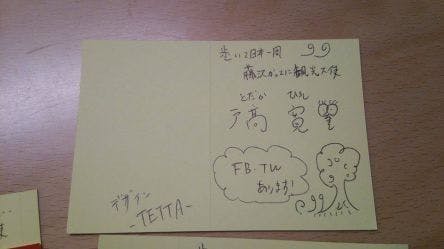 歩いて日本一周
藤沢がってに観光大使
とだか ひろし
戸高 寛
FB・TW
あります!
デザイン
-TETTA-